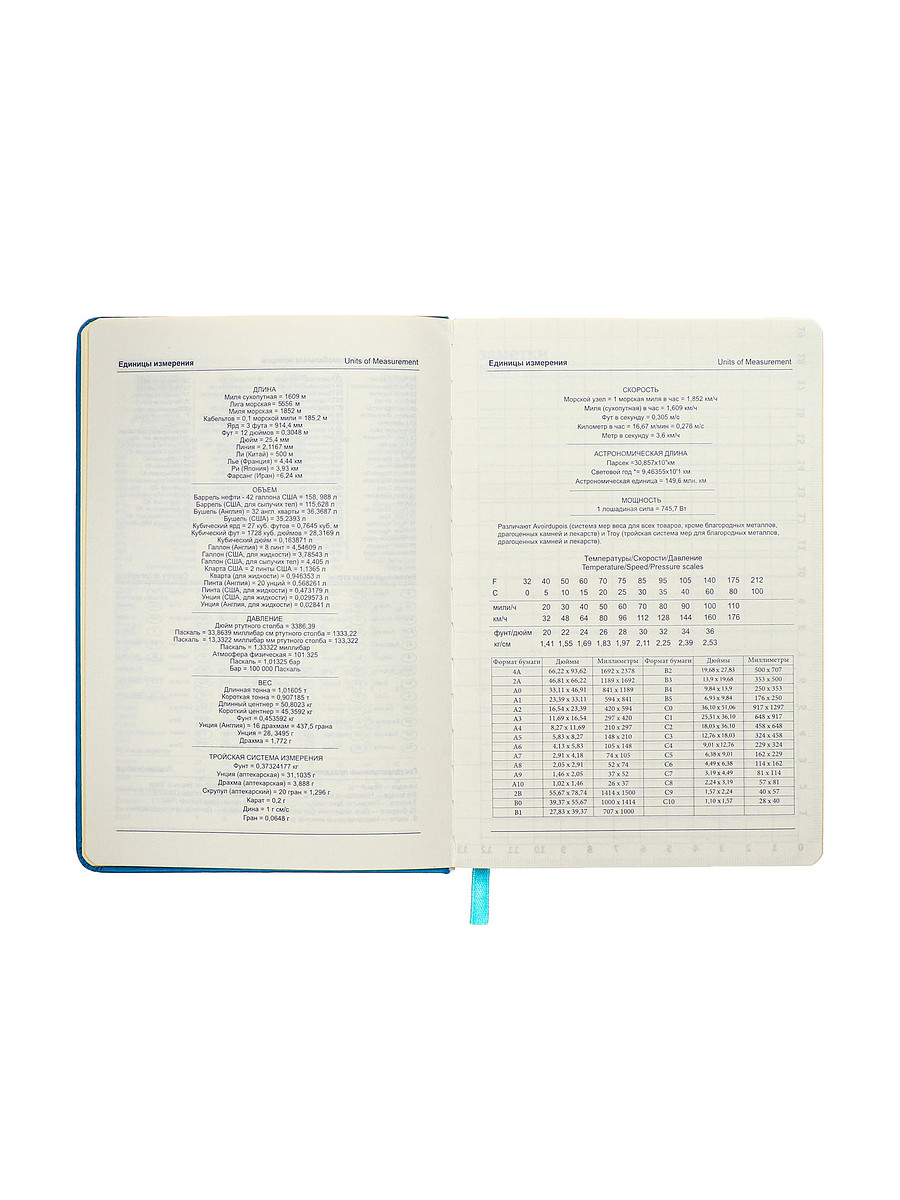 Единицы измерения Units of Measurement
ДЛИНА
Миля сухопутная = 1609 м
Лига морская = 5556 м
Миля морская = 1852 м
Кабельтов = 0,1 морской мили = 185,2 м
Ярд = 3 фута = 914,4 мм
Фут = 12 дюймов = 0,3048 м
Дюйм = 25,4 мм
Линия = 2,1167 мм
Ли (Китай) = 500 м
Лье (Франция) = 4,44 км
Ри (Япония) = 3,93 км
Фарсанг (Иран) =6,24 км
ОБЪЕМ
Баррель нефти - 42 галлона США = 158, 988 л
Баррель (США, для сыпучих тел) = 115,628 л
Бушель (Англия) = 32 англ. кварты = 36,3687 л
Бушель (США) = 35,2393 л
Кубический ярд = 27 куб. футов = 0,7645 куб. м
Кубический фут = 1728 куб. дюймов = 28,3169 л
Кубический дюйм = 0,163871 л
Галлон (Англия) = 8 пинт = 4,54609 л
Галлон (США, для жидкости) = 3,78543 л
Галлон (США, для сыпучих тел) = 4,405 л
Кварта США = 2 пинты США = 1,1365 л
Кварта (для жидкости) = 0,946353 л
Пинта (Англия) = 20 унций = 0,568261 л
Пинта (США, для жидкости) = 0,473179 л
Унция (США, для жидкости) = 0,029573 л
Унция (Англия, для жидкости) = 0,02841 л
ДАВЛЕНИЕ
Дюйм ртутного столба = 3386,39
Паскаль = 33,8639 миллибар см ртутного столба = 1333,22
Паскаль = 13,3322 миллибар мм ртутного столба = 133,322
Паскаль = 1,33322 миллибар
Атмосфера физическая = 101 325
Паскаль = 1,01325 бар
Бар = 100 000 Паскаль
ВЕС
Длинная тонна = 1,01605 т
Короткая тонна = 0,907185 т
Длинный центнер = 50,8023 кг
Короткий центнер = 45,3592 кг
Фунт = 0,453592 кг
Унция (Англия) = 16 драхмам = 437,5 грана
Унция = 28, 3495 г
Драхма = 1,772 г
ТРОЙСКАЯ СИСТЕМА ИЗМЕРЕНИЯ
Фунт = 0,37324177 кг
Унция (аптекарская) = 31,1035 г
Драхма (аптекарская) = 3,888 г
Скрупул (аптекарский) = 20 гран = 1,296 г
Карат = 0,2 г
Дина = 1 г см/с
Гран = 0,0648 г
Единицы измерения Units of Measurement
СКОРОСТЬ
Морской узел = 1 морская миля в час = 1,852 км/ч
Миля (сухопутная) в час = 1,609 км/ч
Фут в секунду = 0,305 м/с
Километр в час = 16,67 м/мин = 0,278 м/с
Метр в секунду = 3,6 км/ч
АСТРОНОМИЧЕСКАЯ ДЛИНА
Парсек =30,857х10"км
Световой год "= 9,46355х10"1 км
Астрономическая единица = 149,6 млн. км
МОЩНОСТЬ
1 лошадиная сила = 745,7 Вт
Различают Avoirdupois (система мер веса для всех товаров, кроме благородных металлов,
драгоценных камней и лекарств) и Troy (тройская система мер для благородных металлов,
драгоценных камней и лекарств).
Температуры/Скорости/Давление
Temperature/Speed/Pressure scales
F 32 40 50 60 70 75 85 95 105 140 175 212
C 0 5 10 15 20 25 30 35 40 60 80 100
мили/ч 20 30 40 50 60 70 80 90 100 110
км/ч 32 48 64 80 96 112 128 144 160 176
фунт/дюйм 20 22 24 26 28 30 32 34 36
кг/см 1,41 1,55 1,69 1,83 1,97 2,11 2,25 2,39 2,53
Формат бумаги Дюймы Миллиметры Формат бумаги Дюймы Миллиметры
4A 66,22 x 93,62 1692 x 2378 B2 19,68 x 27,83 500 x 707
2A 46,81 x 66,22 1189 x 1692 B3 13,9 x 19,68 353 x 500
A0 33,11 x 46,91 841 x 1189 B4 9,84 x 13,9 250 x 353
A1 23,39 x 33,11 594 x 841 B5 6,93 x 9,84 176 x 250
A2 16,54 x 23,39 420 x 594 C0 36,10 x 51,06 917 x 1297
A3 11,69 x 16,54 297 x 420 C1 25,51 x 36,10 648 x 917
A4 8,27 x 11,69 210 x 297 C2 18,03 x 36,10 458 x 648
A5 5,83 x 8,27 148 x 210 C3 12,76 x 18,03 324 x 458
A6 4,13 x 5,83 105 x 148 C4 9,01 x 12,76 229 x 324
A7 2,91 x 4,18 74 x 105 C5 6,38 x 9,01 162 x 229
A8 2,05 x 2,91 52 x 74 C6 4,49 x 6,38 114 x 162
A9 1,46 x 2,05 37 x 52 C7 3,19 x 4,49 81 x 114
A10 1,02 x 1,46 26 x 37 C8 2,24 x 3,19 57 x 81
2B 55,67 x 78,74 1414 x 1500 C9 1,57 x 2,24 40 x 57
B0 39,37 x 55,67 1000 x 1414 C10 1,10 x 1,57 28 x 40
B1 27,83 x 39,37 707 x 1000